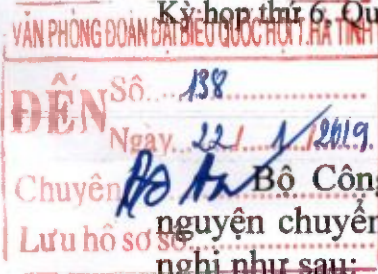 Kỳ họp thứ 6, Qu
VĂN PHÒNG ĐOÀN ĐẠI BIỂU QUỐC HỘI T. HÀ TĨNH
ĐẾN
Số 138
Ngày 22/ 1/ 2019
Chuyên
Bộ Công
nguyện chuyển
Lưu hồ sơ số
nghị như sau: